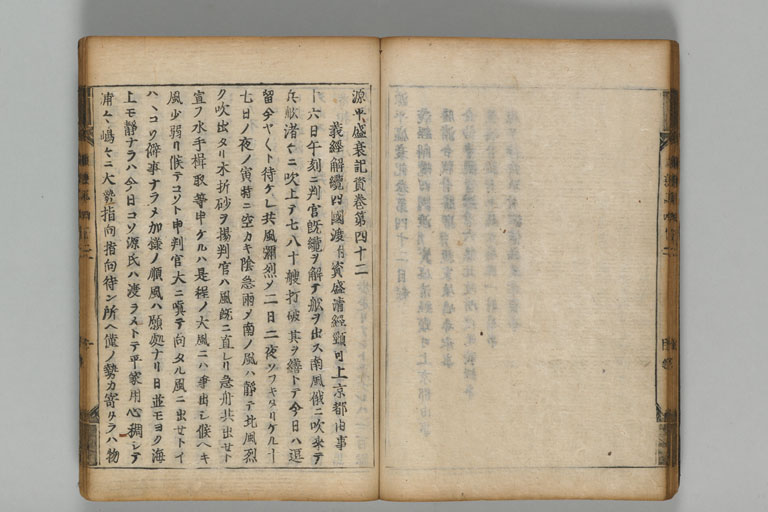 源平盛衰記資巻第四十二
義經解纜四國渡付資盛清經頸可上京都由事
十六日午刻ニ判官既纜ヲ解テ舩ヲ出ス南風俄ニ吹来テ
兵船渚々ニ吹上テ七八十艘打破其ヲ繕トテ今日ハ逗
留今ヤ〱ト待ケレ共風彌烈シ二日二夜ソフキタリケル十
七日ノ夜ノ寅時ニ空カキ陰急雨シ南ノ風ハ静テ北風烈
ク吹出タリ木折砂ヲ揚判官ハ風既ニ直レリ急舟共出セト
宣フ水手楫取等申ケルハ是程ノ大風ニハ争出シ候ヘキ
風少弱リ候テコソト申判官大ニ嗔テ向タル風ニ出セトイ
ハヽコソ僻事ナラメ加様ノ順風ハ願処ナリ日並モヨク海
上モ静ナラハ今日コソ源氏ハ渡ラメトテ平家用心稠シテ
浦々嶋々ニ大勢指向指向待ン所ヘ僅ノ勢カ寄タラハ物